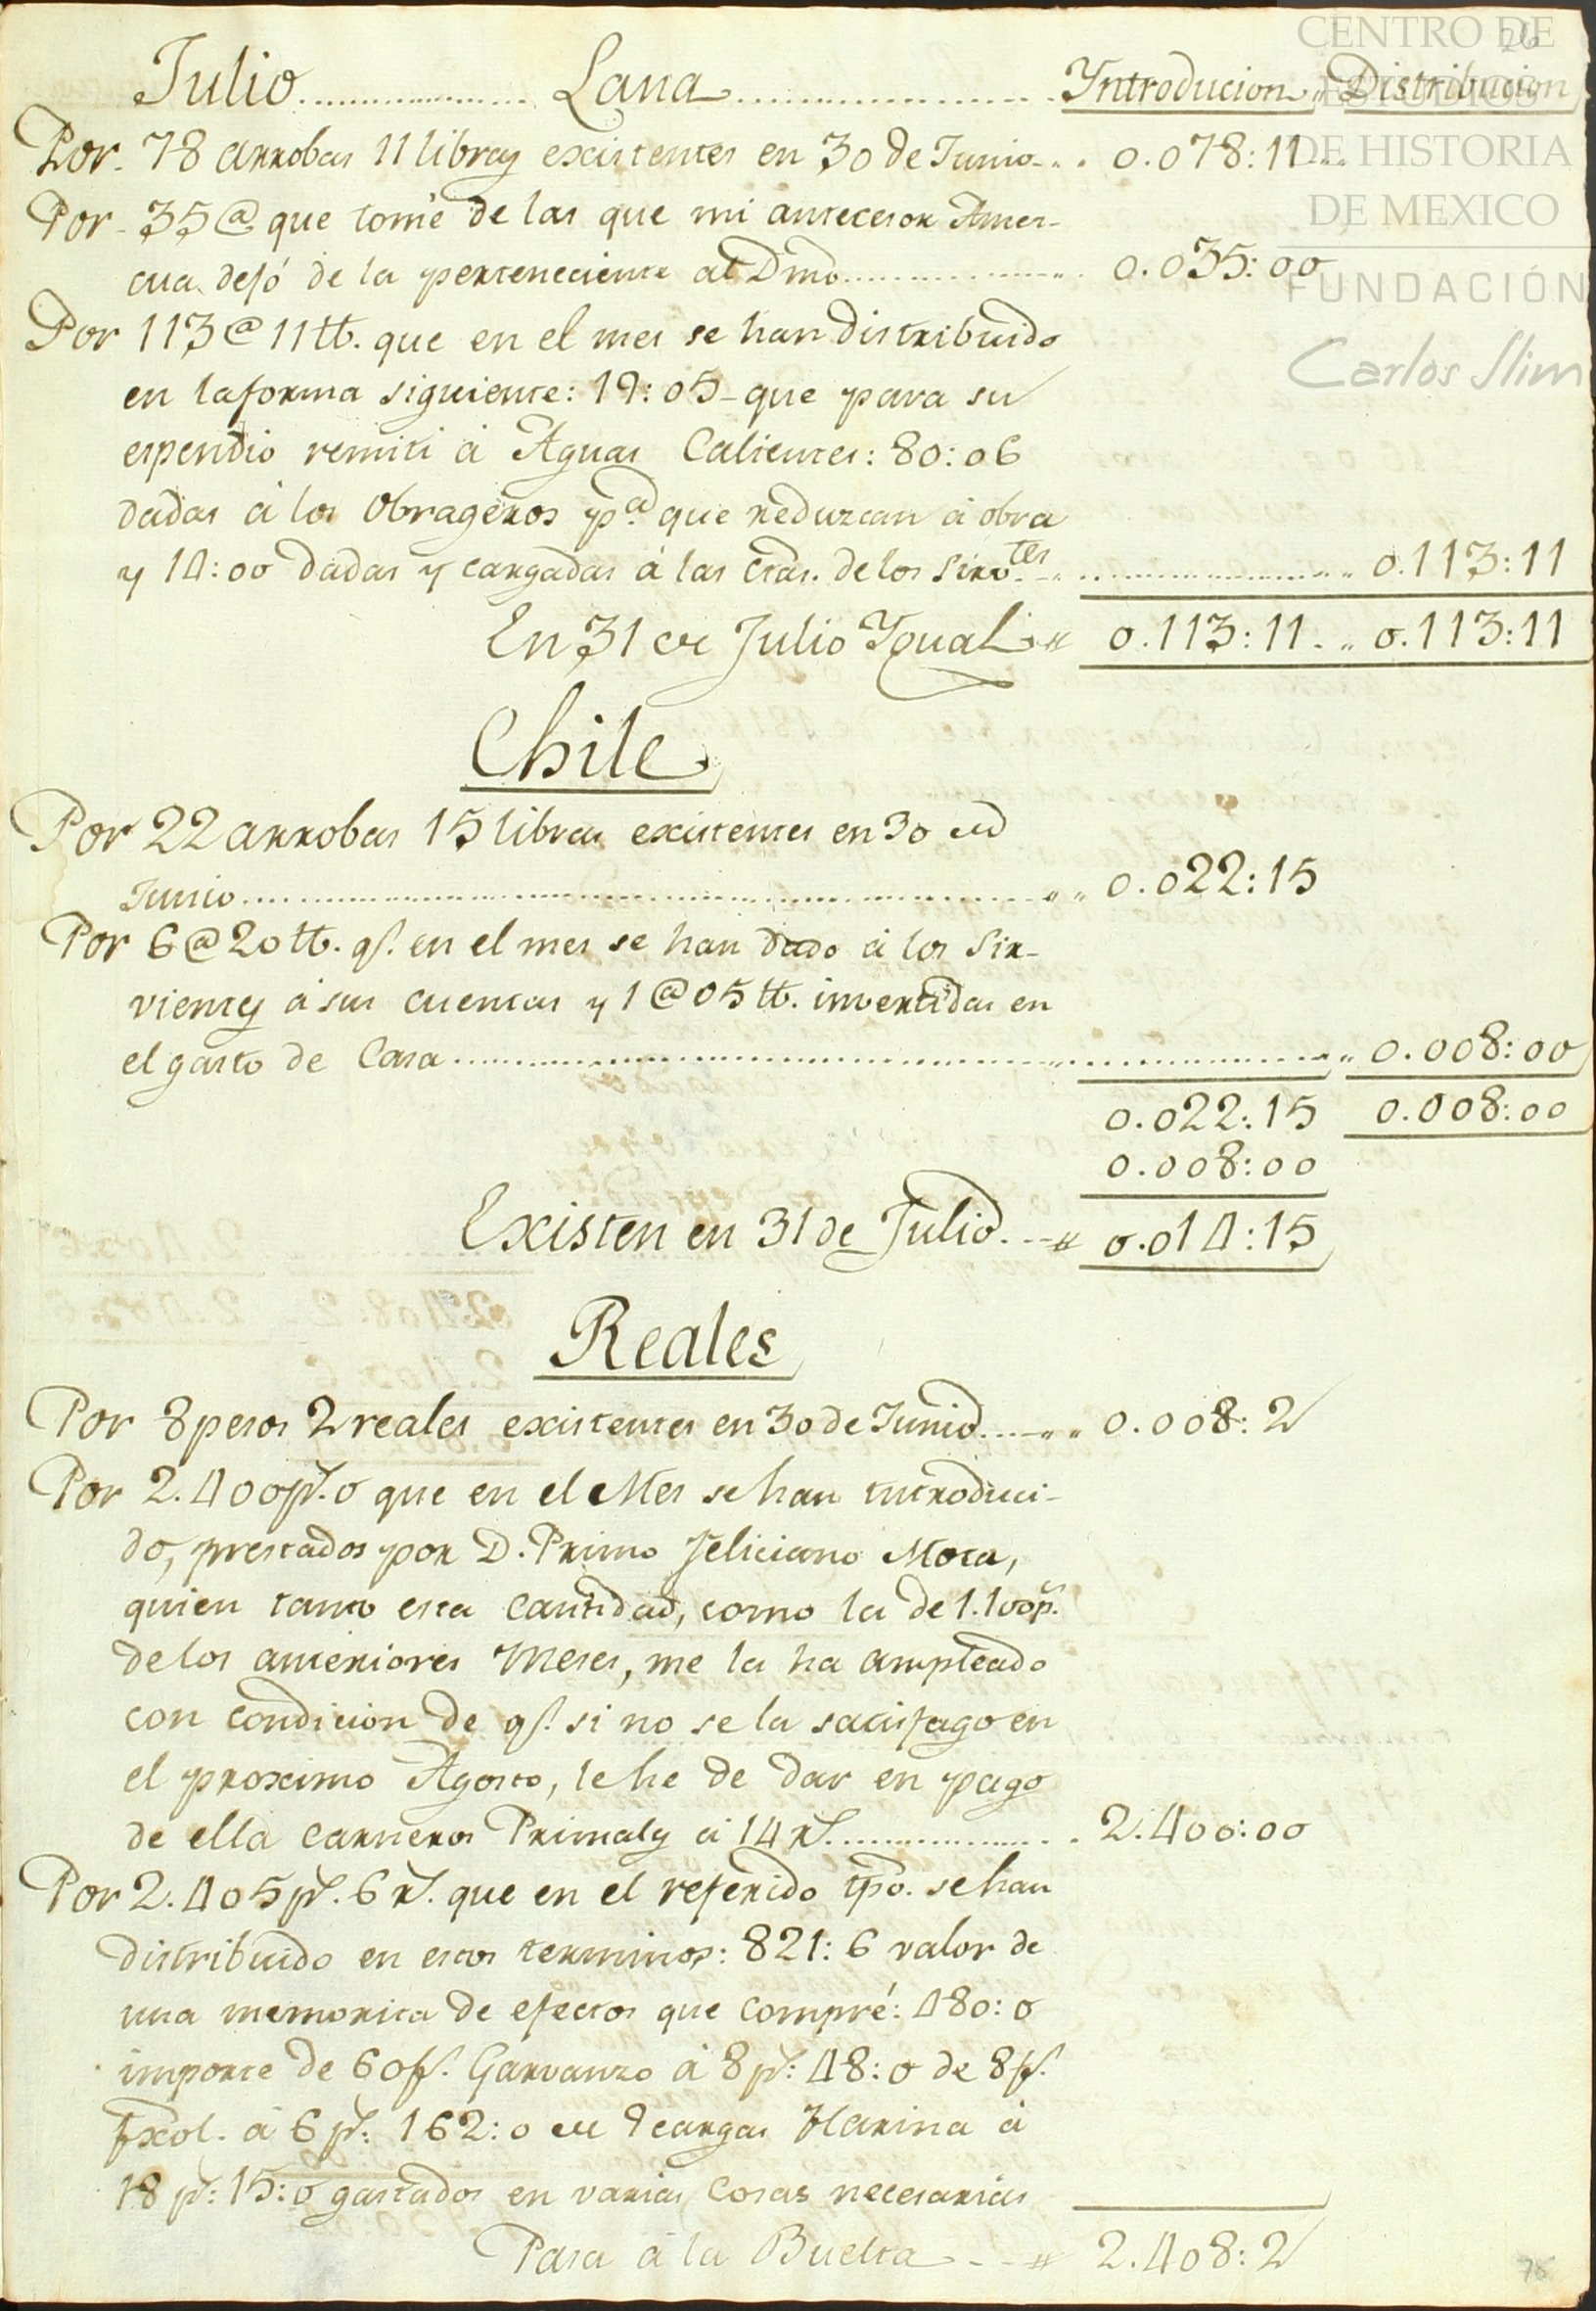 CENTRO DE
ESTUDIOS
DE HISTORIA
DE MEXICO
FUNDACIÓN
Carlos Slim
26
Julio Lana Yntroducion Distribucion
Por 78 arrobas 11 libras existentes en 30 de Junio 0.078:11
Por 35@ que tomé de las que mi antecesor Amez-
cua dejó de la perteneciente al Dmô 0.035:00
Por 113@11 tt. que en el mes se han distribuido
en la forma siguiente: 19:05 que para su
espendio remiti á Aguas Calientes: 80:06
dadas á los Obrageros pª que reduzcan á obra
y 14:00 dadas y cargadas á las ctas. de los Sirvtes 0.113:11
En 31 de Julio Ygual 0.113:11 0.113:11
Chile
Por 22 arrobas 15 libras existentes en 30 de
Junio 0.022:15
Por 6@20 tt. q. en el mes se han dado á los Sir-
vientes á sus cuentas y 1@05 tt. invertidas en
el gasto de Casa 0.008:00
0.022:15 0.008:00
0.008:00
Existen en 31 de Julio 0.014:15
Reales
Por 8 pesos 2 reales existentes en 30 de Junio 0.008:2
Por 2.400 ps. 0 que en el Mes se han introduci-
do, prestados por D. Primo Feliciano Mota,
quien tanto esta cantidad, como la de 1.100 ps.
de los anteriores Meses, me la ha ampleado
con condicion de q. si no se la satisfago en
el proximo Agosto, le he de dar en pago
de ella carneros Primales á 14 rs. 2.400:00
Por 2.405 ps. 6 rs. que en el referido tpô. se han
distribuido en estos terminos: 821:6 valor de
una memorita de efectos que compré: 480:0
importe de 60 fs. Garvanzo á 8 ps: 48:0 de 8 fs.
fxol. á 6 ps: 162:0 de 9 cargas Harina á
18 ps: 15:0 gastados en varias cosas necesarias
Pasa á la Buelta 2.408:2
75